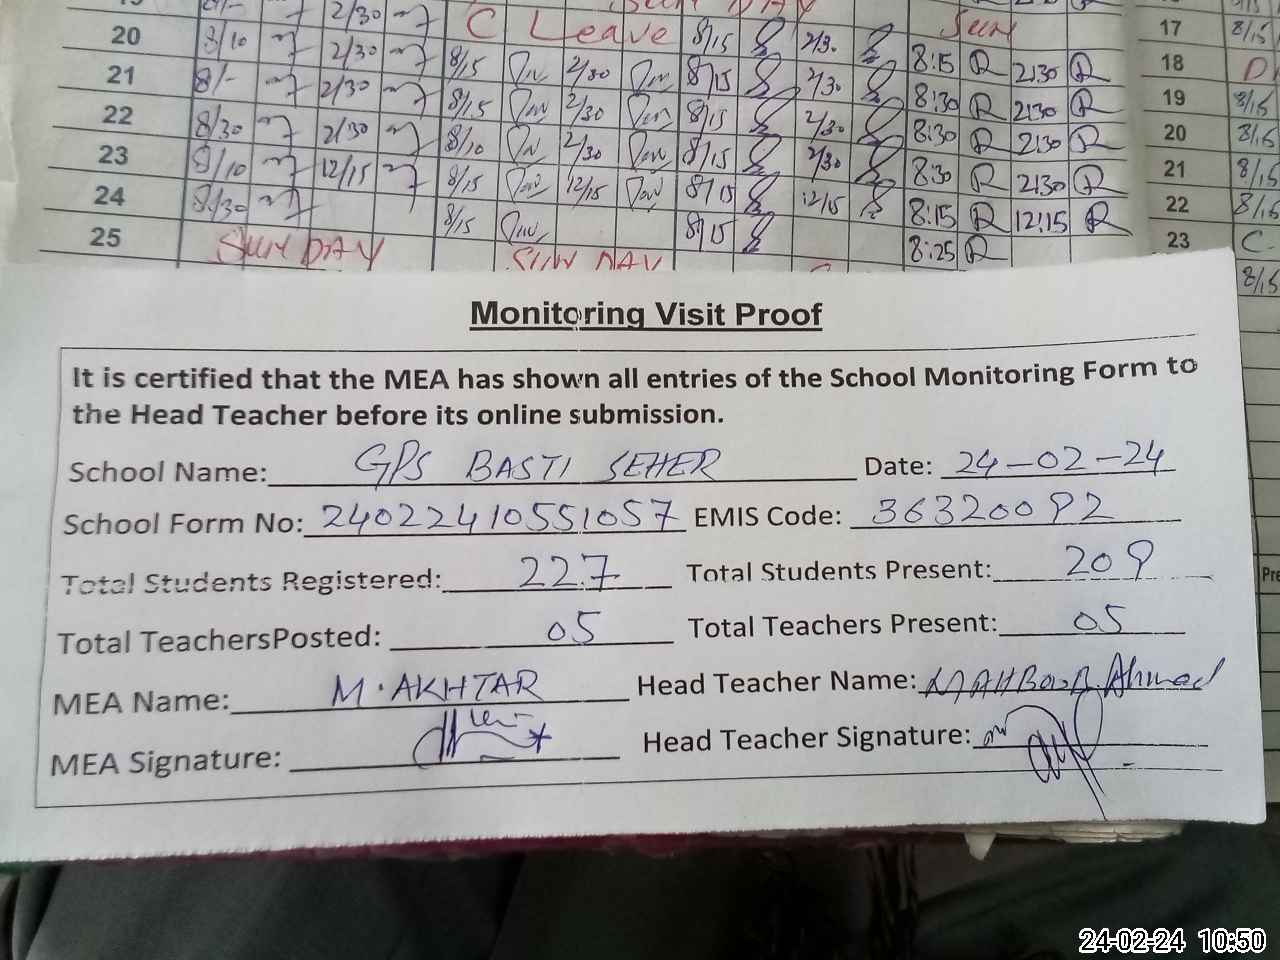 20 8/10 2/30 C Leave 8/15 2/3. Sun 17 8/15
21 8/- 2/30 8/15 2/30 8/15 2/30 8:15 R 2:30 R 18
22 8/30 2/30 8/15 2/30 8/15 2/30 8:30 R 2:30 R 19 8/15
23 8/10 12/15 8/10 2/30 8/15 2/30 8:30 R 2:30 R 20 8/15
24 8/30 8/15 12/15 8/15 12/15 8:30 R 2:30 R 21 8/15
25 SUNDAY 8/15 8/15 8:15 R 12:15 R 22 8/15
SUN DAY 8:25 R 23 C
8/15
Monitoring Visit Proof
It is certified that the MEA has shown all entries of the School Monitoring Form to
the Head Teacher before its online submission.
School Name: GPS BASTI SEHER Date: 24-02-24
School Form No: 240224105510 57 EMIS Code: 36320092
Total Students Registered: 227 Total Students Present: 209
Total TeachersPosted: 05 Total Teachers Present: 05
MEA Name: M. AKHTAR Head Teacher Name: MAHBOOB Ahmed
MEA Signature: Head Teacher Signature:
24-02-24 10:50